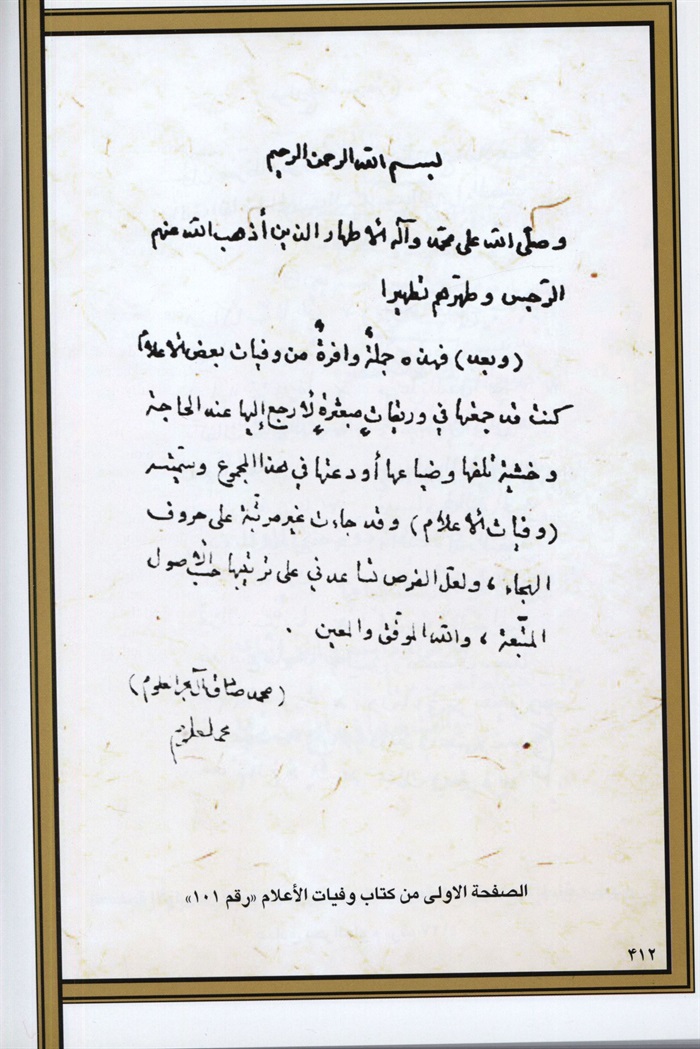 بسم الله الرحمن الرحيم
وصلّى الله على محمّد وآله الأطهار الذين أذهب الله عنهم
الرّجس وطهّرهم تطهيرا
(وبعد) فهذه جملةٌ وافرةٌ من وفيات بعض الأعلام
كنت قد جمعتها في وريقاتٍ مبعثرةٍ لأرجع إليها عند الحاجة
وخشية تلفها وضياعها أودعتها في هذا المجموع وسمّيته
(وفيات الأعلام) وقد جاءت غير مرتّبة على حروف
الهجاء، ولعلّ الفرص تساعدني على ترتيبها حسب الأصول
المتّبعة، والله الموفّق والمعين.
(محمد صادق آل بحر العلوم)
الصفحة الاولى من كتاب وفيات الأعلام «رقم ١٠١»
٤١٢